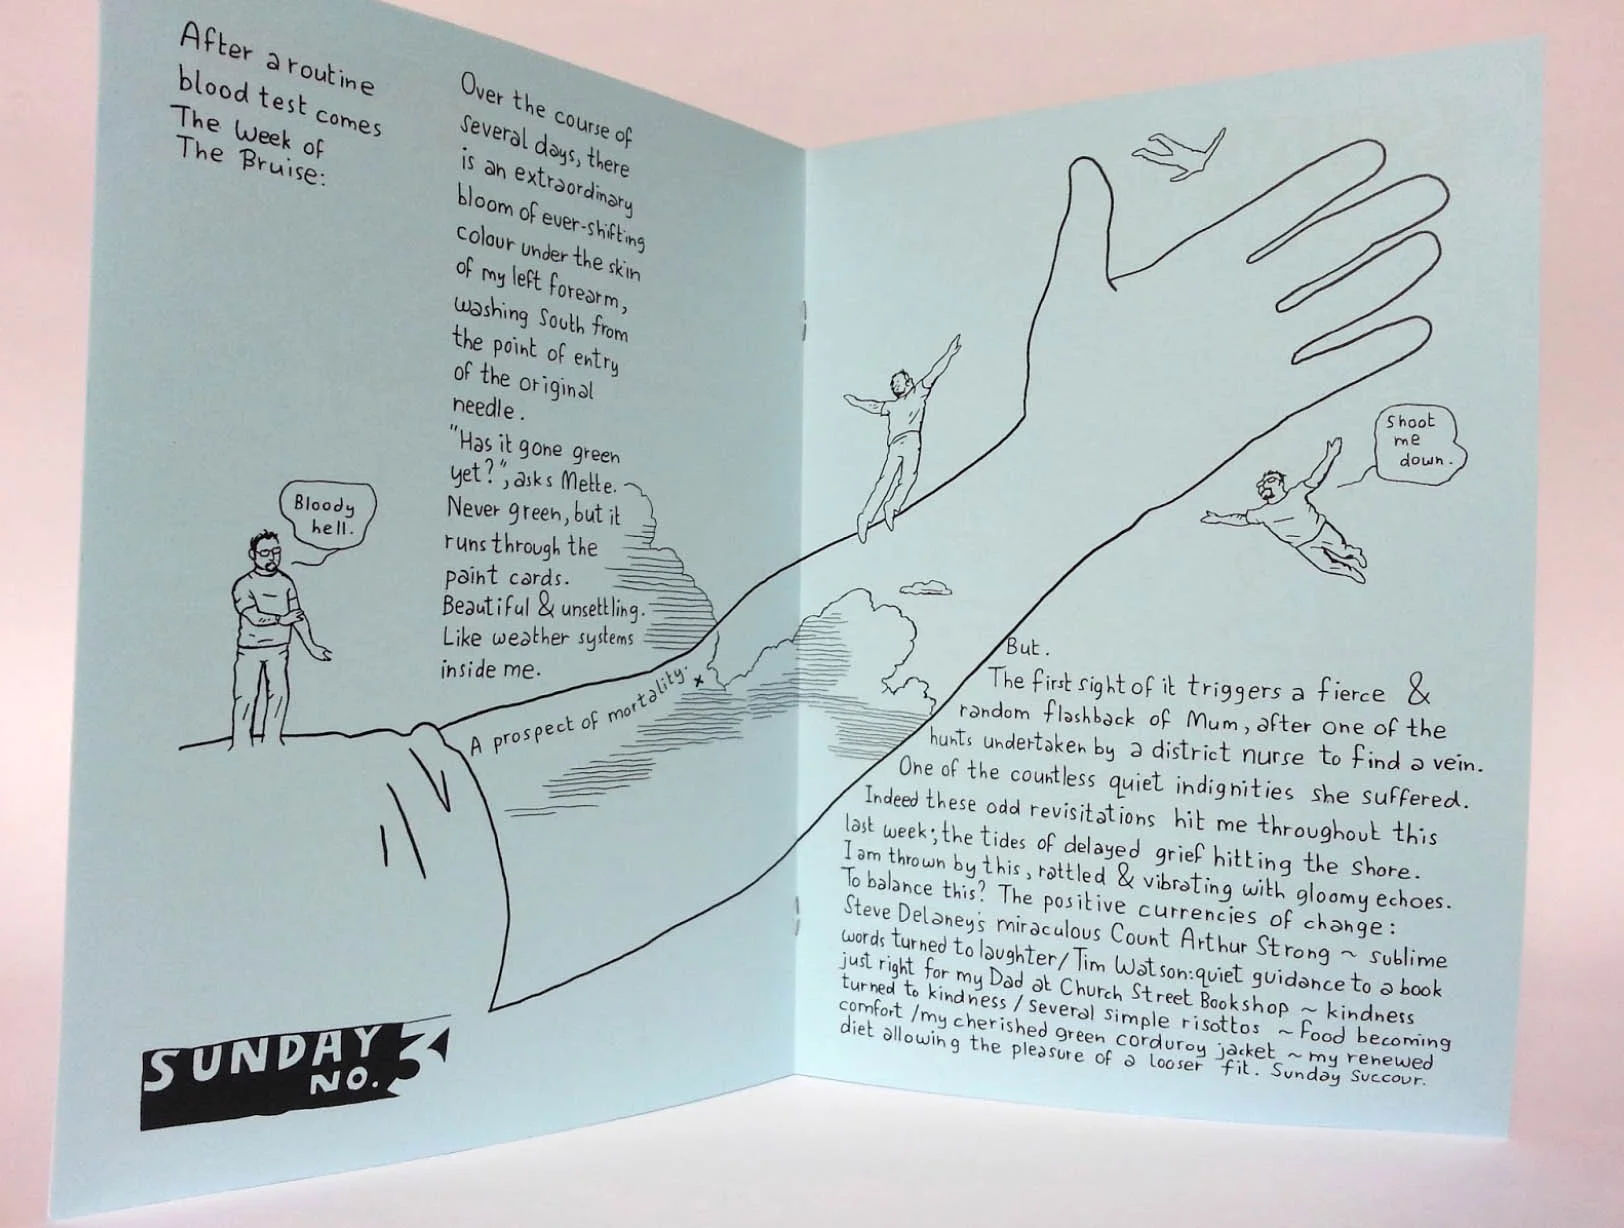 After a routine
blood test comes
The Week of
The Bruise:
Over the course of
several days, there
is an extraordinary
bloom of ever-shifting
colour under the skin
of my left forearm,
washing South from
the point of entry
of the original
needle.
"Has it gone green
yet?", asks Mette.
Never green, but it
runs through the
paint cards.
Beautiful & unsettling.
Like weather systems
inside me.
Bloody
hell.
A prospect of mortality.
SUNDAY
NO. 3
Shoot
me
down.
But.
The first sight of it triggers a fierce &
random flashback of Mum, after one of the
hunts undertaken by a district nurse to find a vein.
One of the countless quiet indignities she suffered.
Indeed these odd revisitations hit me throughout this
last week; the tides of delayed grief hitting the shore.
I am thrown by this, rattled & vibrating with gloomy echoes.
To balance this? The positive currencies of change:
Steve Delaney's miraculous Count Arthur Strong ~ sublime
words turned to laughter/Tim Watson: quiet guidance to a book
just right for my Dad at Church Street Bookshop ~ kindness
turned to kindness / several simple risottos ~ food becoming
comfort /my cherished green corduroy jacket ~ my renewed
diet allowing the pleasure of a looser fit. Sunday Succour.